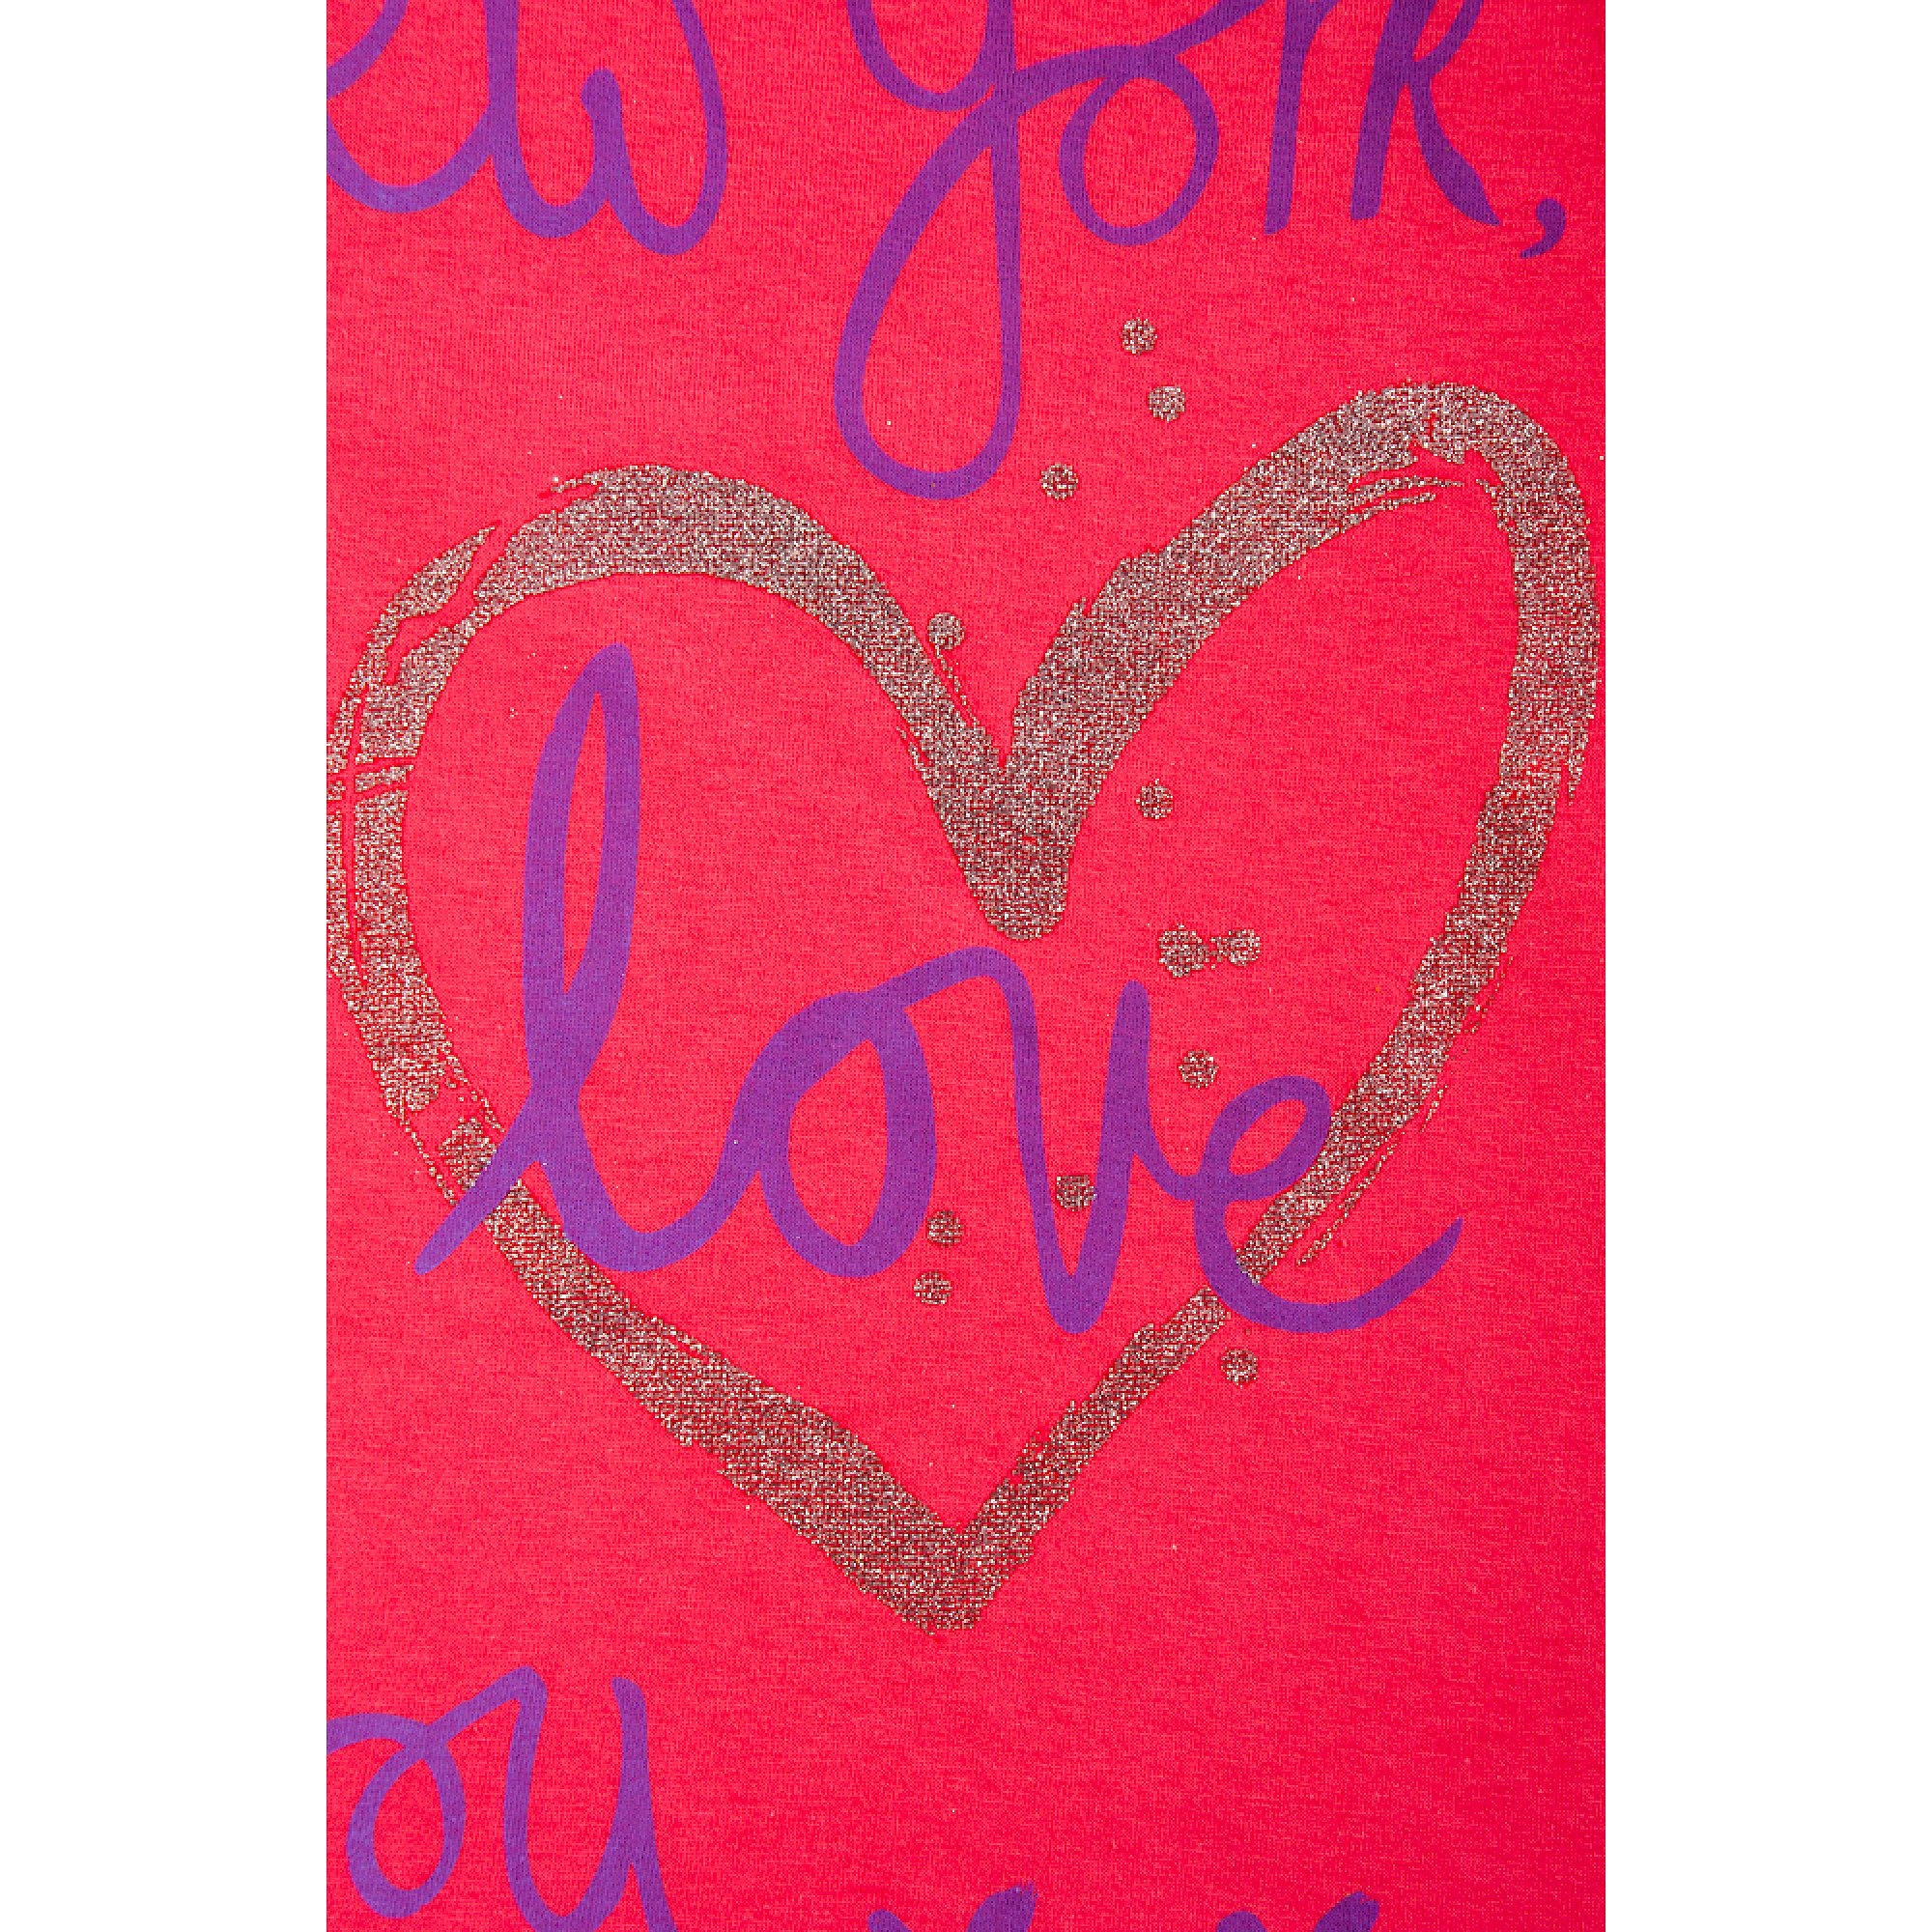 ew york,
love
ou